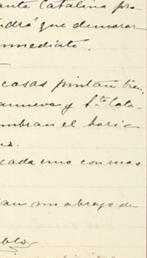 anta Catalina pro
drá que demorar
inmediato.
cosas pintan bien,
y Sta Cata
mbran el hori
cada uno con mas
un abrazo de
blo